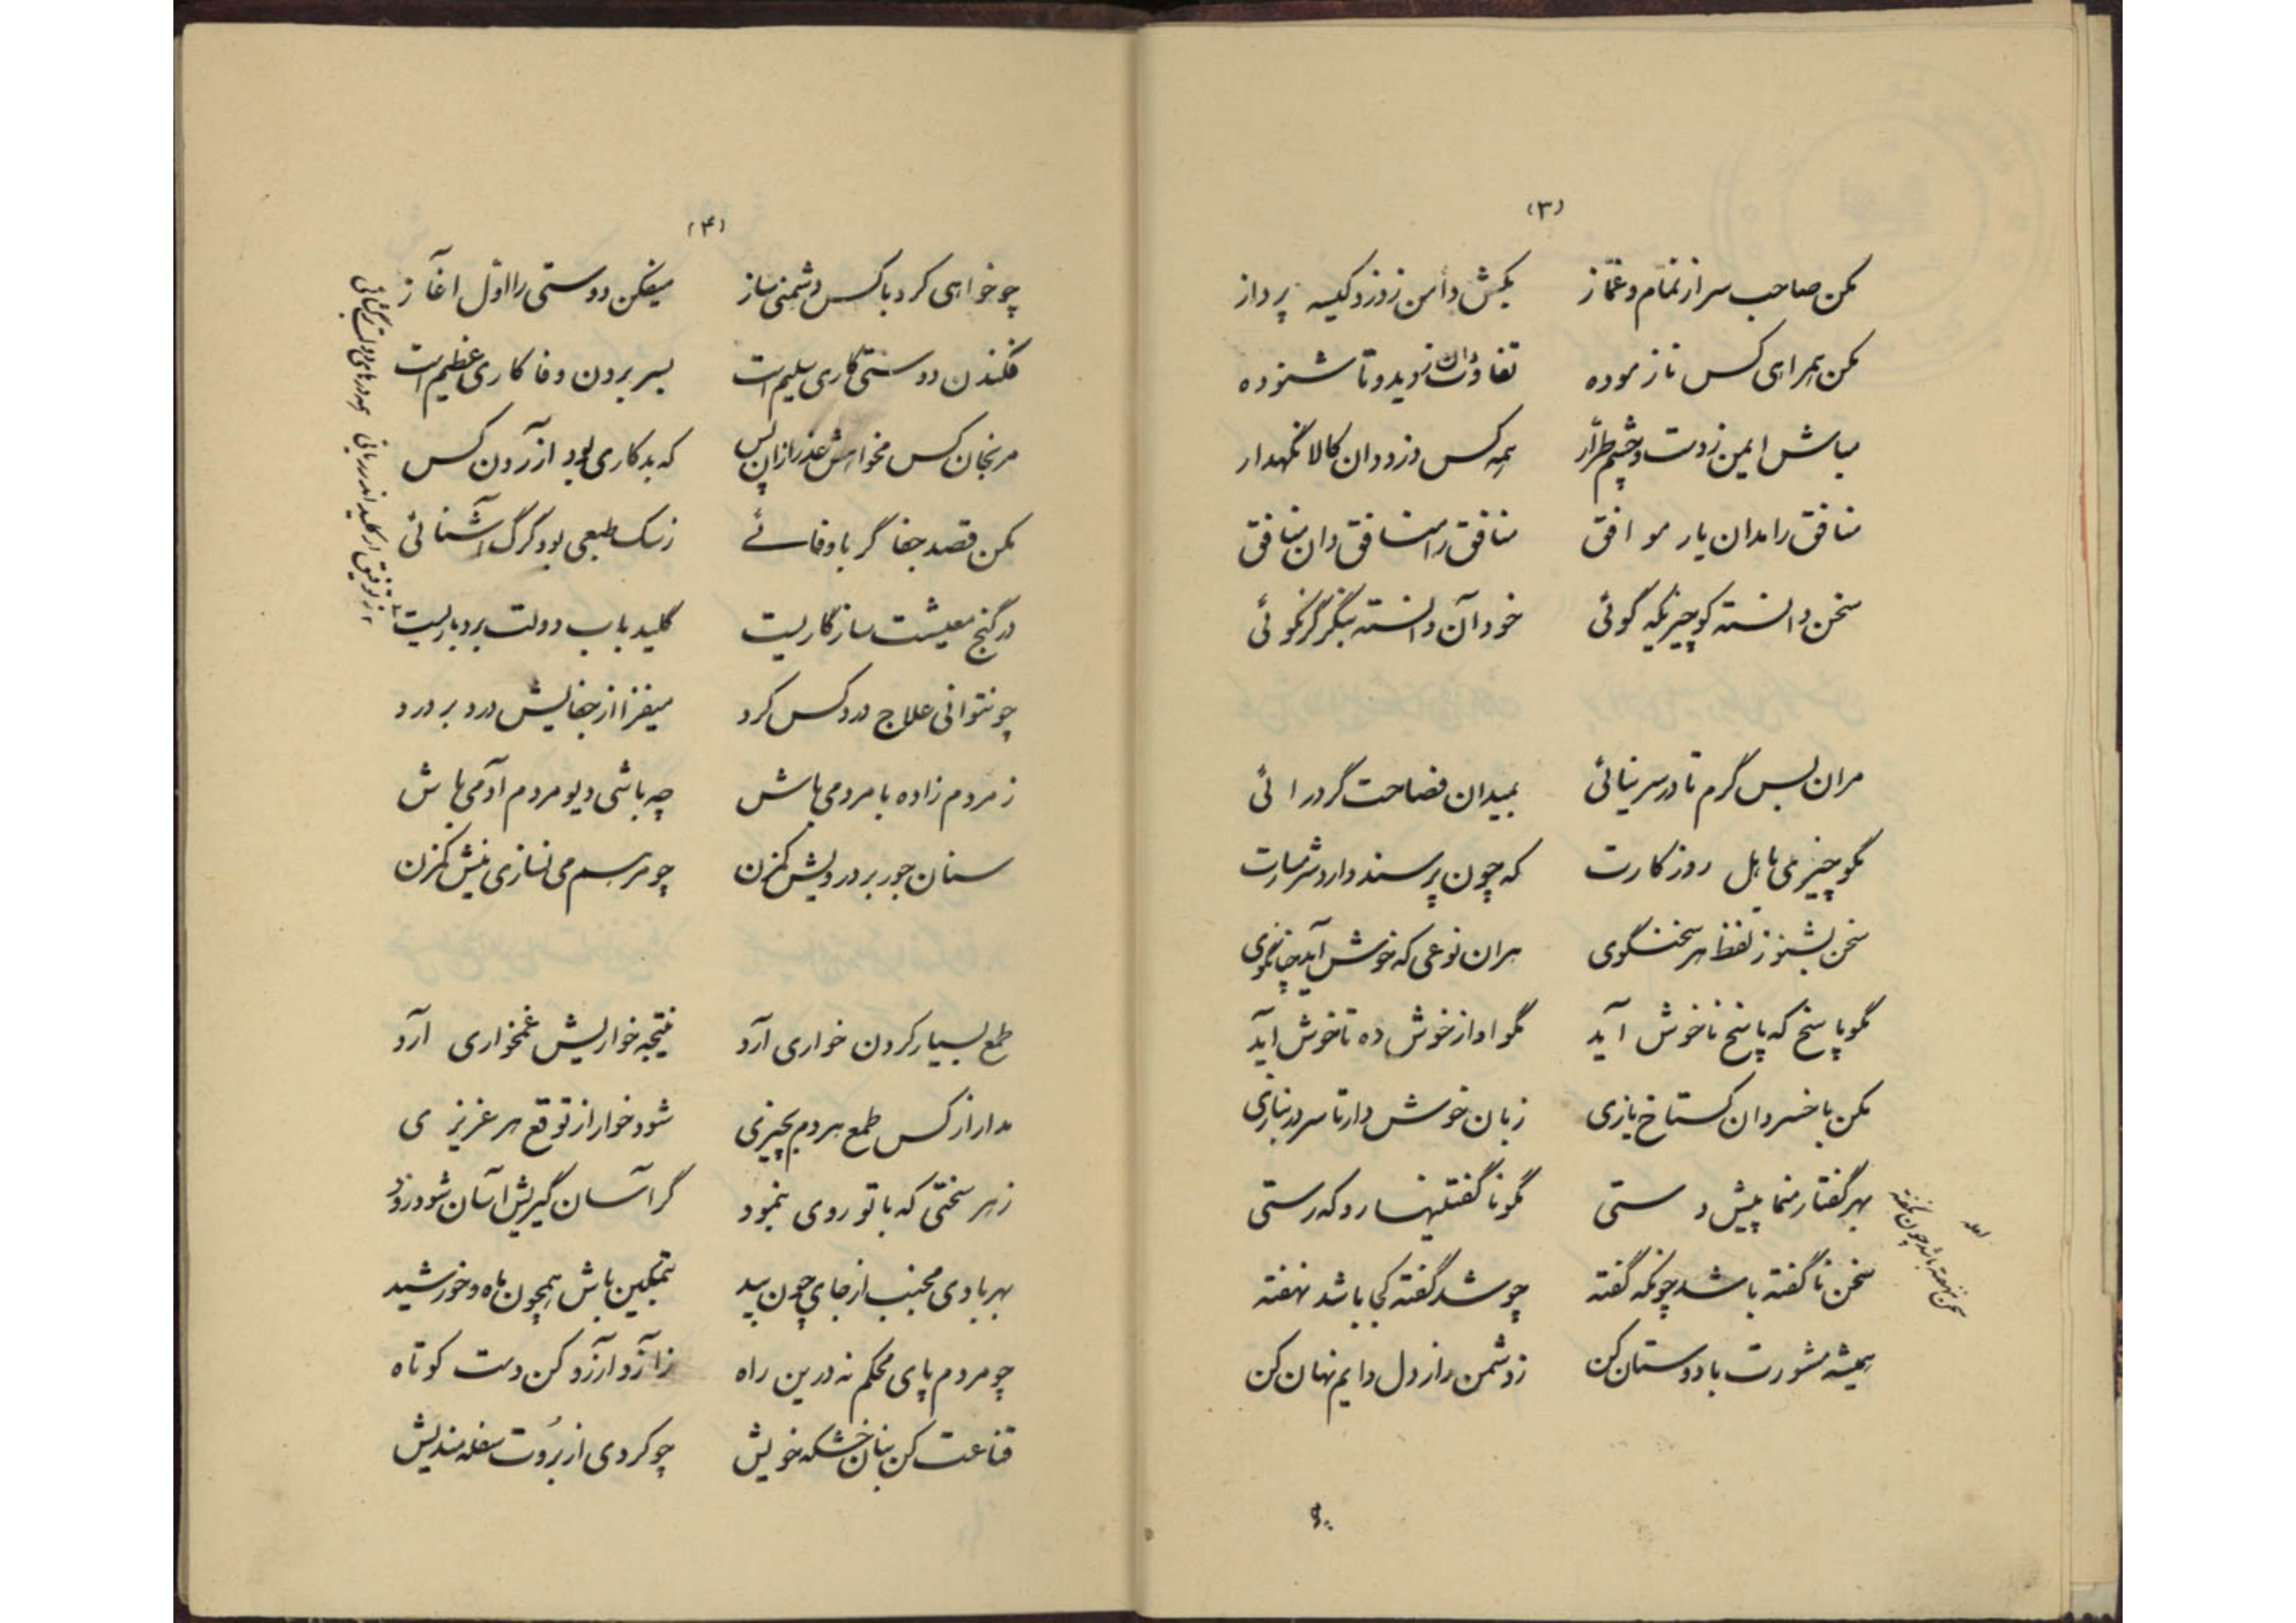 (۳)
مکن صاحب سر از نمام و غماز    بکش دامن ز دزد و کیسه پرداز
مکن همراهی کس ناز موده    تفاوت دان ز دیده تا شنوده
مباش ایمن ز دست و چشم طرار    همه کس دزد دان کالا نگهدار
منافق را مدان یار موافق    منافق را منافق دان منافق
سخن دانسته گو چیزیکه گوئی    خود آن دانسته بنگر گر نکوئی
مران بس گرم تا در سر نیائی    بمیدان فصاحت گر درائی
مگو چیزی باهل روزگارت    که چون پرسند دارد شرمسارت
سخن بشنو ز لفظ هر سخنگوی    هران نوعی که خوش آید چنان گوی
مگو پاسخ که پاسخ ناخوش آید    مگو اواز خوش ده تا خوش آید
مکن با خسروان گستاخ بازی    زبان خوش دار تا سر در نبازی
بهر گفتار منما پیش دستی    مگو ناگفتنیها رو که رستی
سخن ناگفته باشد چونکه گفته    چو شد گفته کجا باشد نهفته
سخن نهفته باشد چون نگفته
همیشه مشورت با دوستان کن    ز دشمن راز دل دایم نهان کن
(۴)
چو خواهی کرد با کس دشمنی ساز    میفکن دوستی را اول اغاز
فکندن دوستی کاری سلیم است    بسر بردن وفا کاری عظیم است
مرنجان کس مخواهش عذر ازان پس    که بد کاری بود آزردن کس
مکن قصد جفا گر باوفائے    ز سگ طبعی بود گرگ آشنائی
در گنج معیشت سازگاریست    کلید باب دولت بردباریست
همه درهای دولت بر گشائی    از توفیق ار کلید اندر ربائی
چو نتوانی علاج درد کس کرد    میفزا از جفایش درد بر درد
ز مردم زاده با مردمی باش    چه باشی دیو مردم آدمی باش
سنان جور بر درویش کم زن    چو مرهم می نسازی نیش کم زن
طمع بسیار کردن خواری آرد    نتیجه خواریش غمخواری آرد
مدار از کس طمع هردم بچیزی    شود خوار از توقع هر عزیزی
ز هر سختی که با تو روی بنمود    گر آسان گیریش اسان شود زود
بهر بادی مجنب از جای چون بید    بتمکین باش همچون ماه و خورشید
چو مردم پای محکم نه درین راه    ز آز و آرزو کن دست کوتاه
قناعت کن بنان خشکه خویش    چو کردی از بروت سفله مندیش